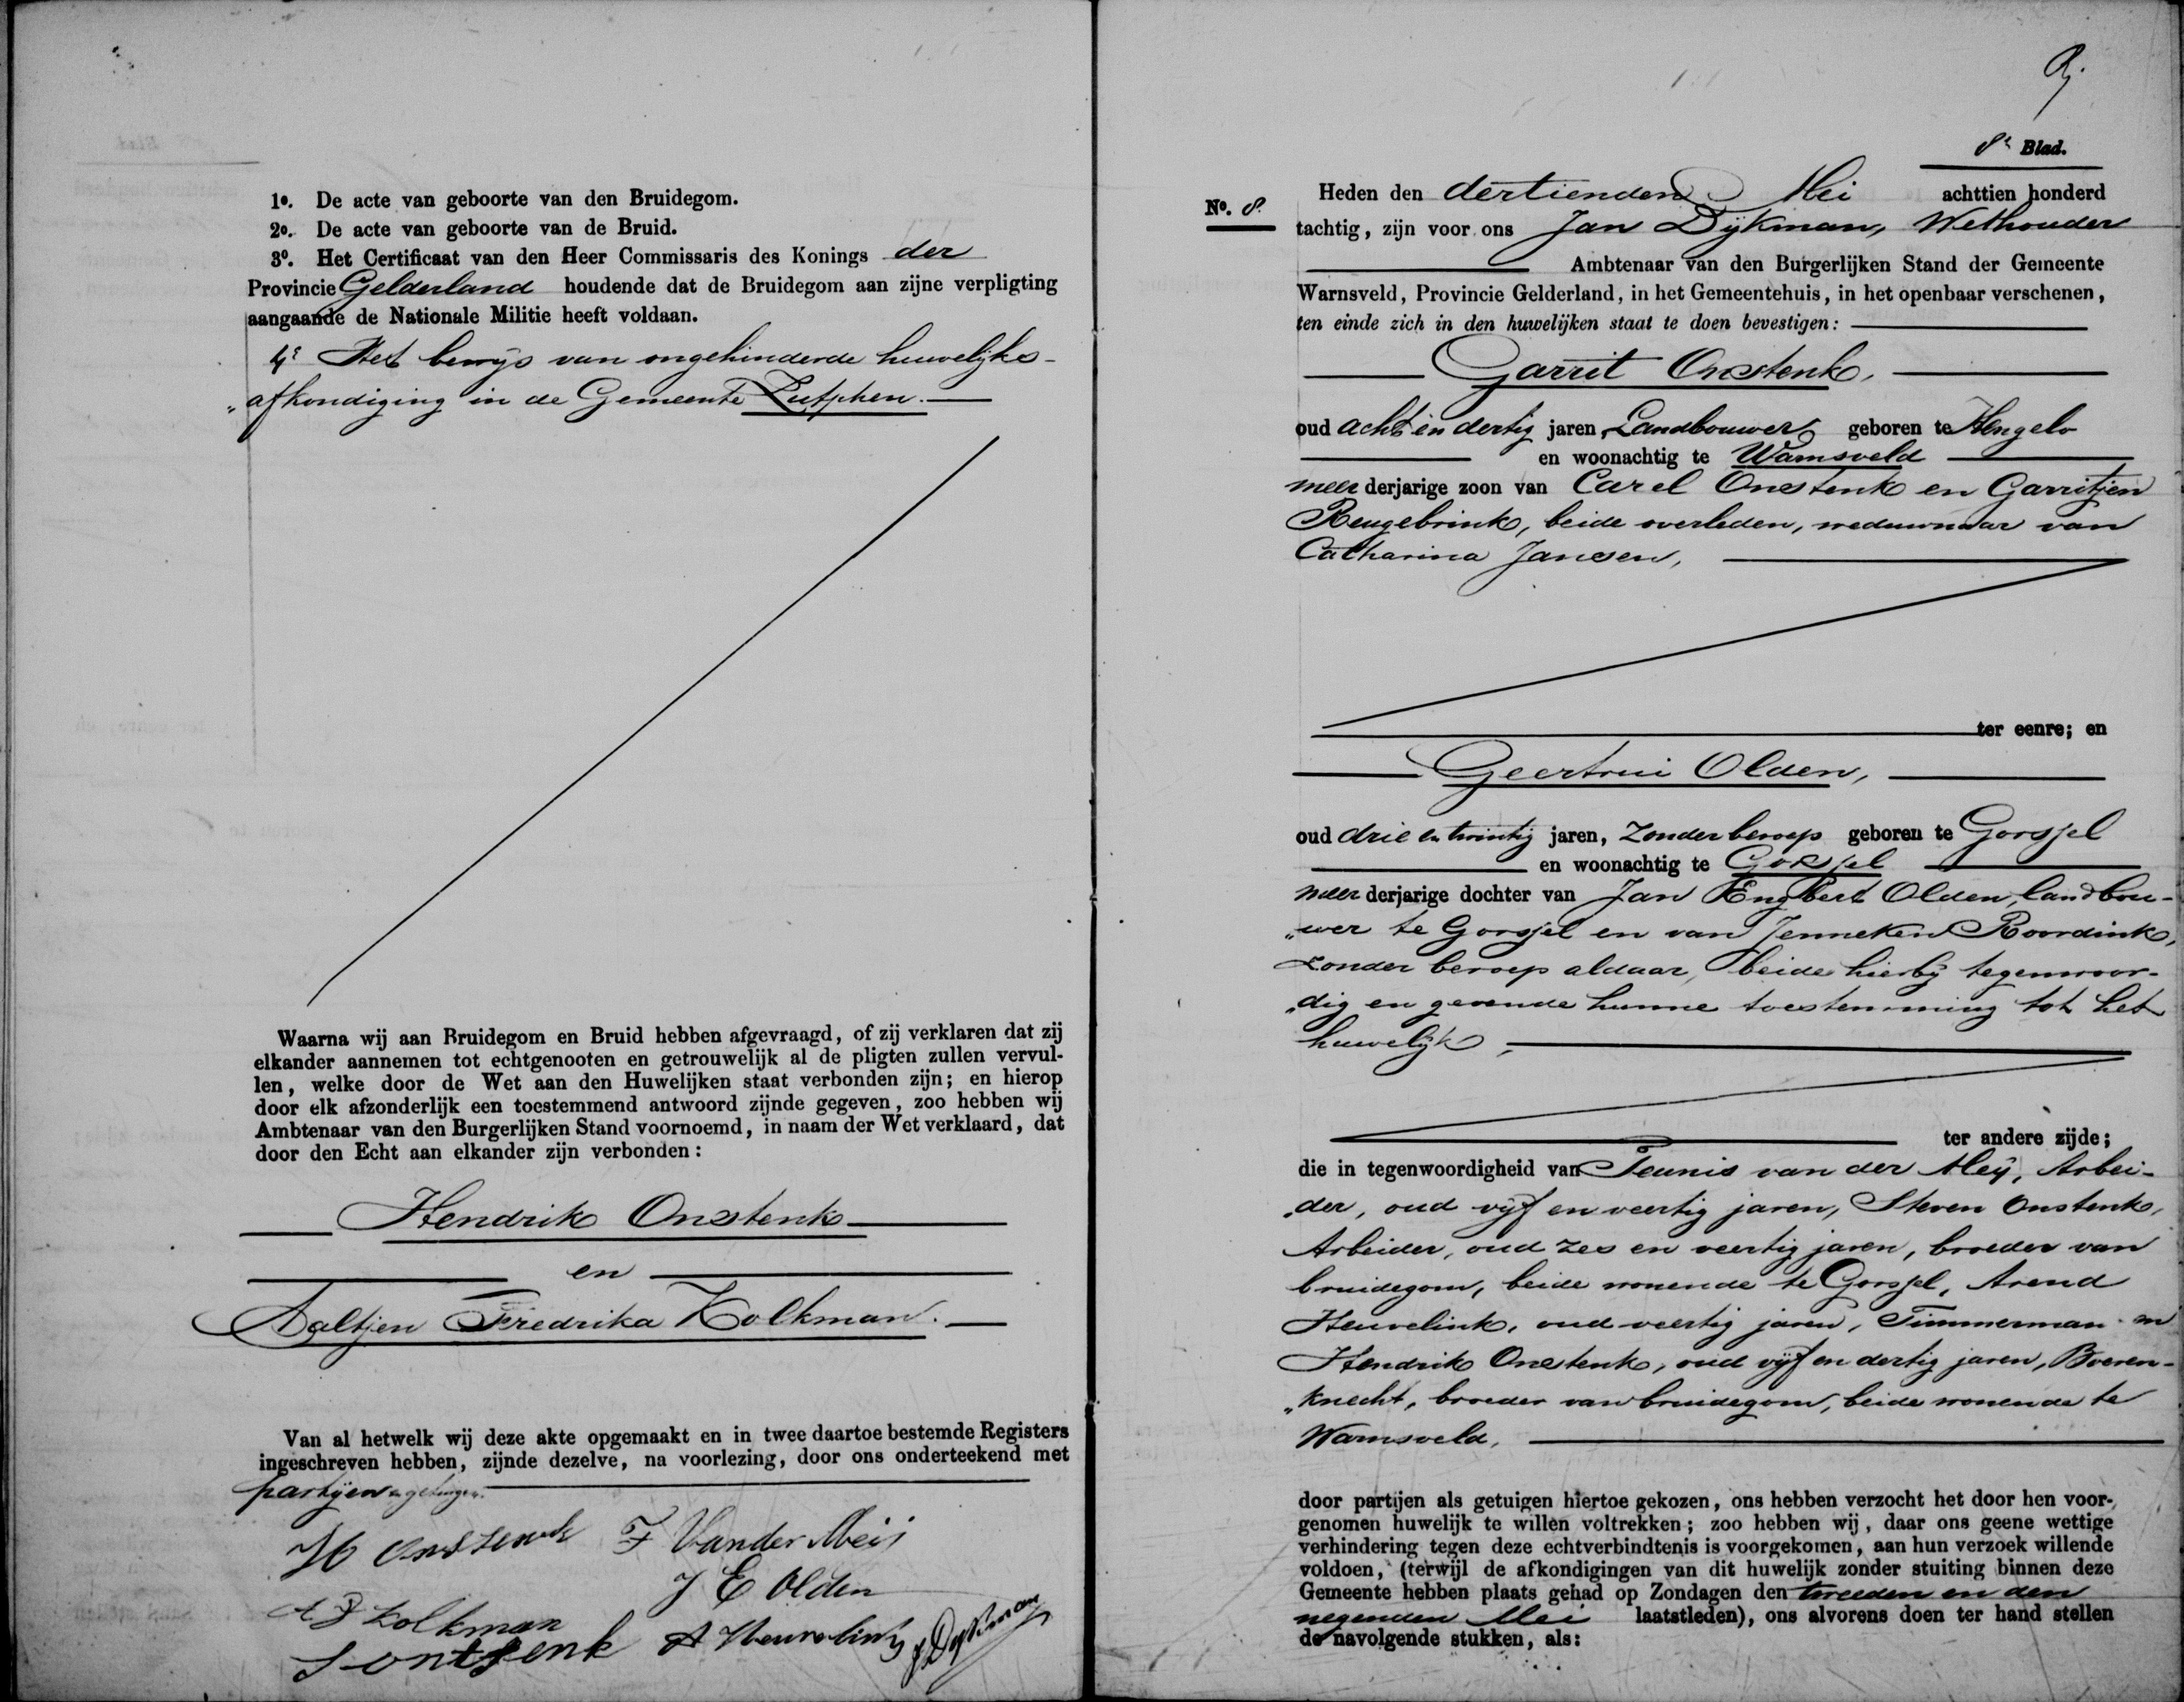 1º. De acte van geboorte van den Bruidegom.
2º. De acte van geboorte van de Bruid.
3º. Het Certificaat van den Heer Commissaris des Konings der
Provincie Gelderland houdende dat de Bruidegom aan zijne verpligting
aangaande de Nationale Militie heeft voldaan.
4º Het bewijs van ongehinderde huwelijks-
„afkondiging in de Gemeente Zutphen.
Waarna wij aan Bruidegom en Bruid hebben afgevraagd, of zij verklaren dat zij
elkander aannemen tot echtgenooten en getrouwelijk al de pligten zullen vervul-
len, welke door de Wet aan den Huwelijken staat verbonden zijn; en hierop
door elk afzonderlijk een toestemmend antwoord zijnde gegeven, zoo hebben wij
Ambtenaar van den Burgerlijken Stand voornoemd, in naam der Wet verklaard, dat
door den Echt aan elkander zijn verbonden:
Hendrik Onstenk
en
Aaltjen Fredrika Kolkman.
Van al hetwelk wij deze akte opgemaakt en in twee daartoe bestemde Registers
ingeschreven hebben, zijnde dezelve, na voorlezing, door ons onderteekend met
partijen en getuigen.
H Onstenk T Van der Meij
J E Olden
A F Kolkman
S ontstenk A Heuvelink J Dijkman
8e Blad.
No. 8.
Heden den dertienden Mei achttien honderd
tachtig, zijn voor ons Jan Dijkman, Wethouder
Ambtenaar van den Burgerlijken Stand der Gemeente
Warnsveld, Provincie Gelderland, in het Gemeentehuis, in het openbaar verschenen,
ten einde zich in den huwelijken staat te doen bevestigen:
Garrit Onstenk,
oud acht en dertig jaren, Landbouwer, geboren te Hengelo
en woonachtig te Warnsveld
meerderjarige zoon van Carel Onstenk en Garritjen
Reugebrink, beide overleden, weduwnaar van
Catharina Jansen,
ter eenre; en
Geertrui Olden,
oud drie en twintig jaren, Zonder beroep geboren te Gorssel
en woonachtig te Gorssel
meerderjarige dochter van Jan Engbert Olden, landbou-
„wer te Gorssel en van Jenneken Roordink,
zonder beroep aldaar, beide hierbij tegenwoor-
„dig en gevende hunne toestemming tot het
huwelijk,
ter andere zijde;
die in tegenwoordigheid van Teunis van der Meij, Arbei-
„der, oud vijf en veertig jaren, Steven Onstenk,
Arbeider, oud zes en veertig jaren, broeder van
bruidegom, beide wonende te Gorssel, Arend
Heuvelink, oud veertig jaren, Timmerman en
Hendrik Onstenk, oud vijf en dertig jaren, Boeren-
„knecht, broeder van bruidegom, beide wonende te
Warnsveld,
door partijen als getuigen hiertoe gekozen, ons hebben verzocht het door hen voor-
genomen huwelijk te willen voltrekken; zoo hebben wij, daar ons geene wettige
verhindering tegen deze echtverbindtenis is voorgekomen, aan hun verzoek willende
voldoen, (terwijl de afkondigingen van dit huwelijk zonder stuiting binnen deze
Gemeente hebben plaats gehad op Zondagen den tweeden en den
negenden Mei laatstleden), ons alvorens doen ter hand stellen
de navolgende stukken, als: